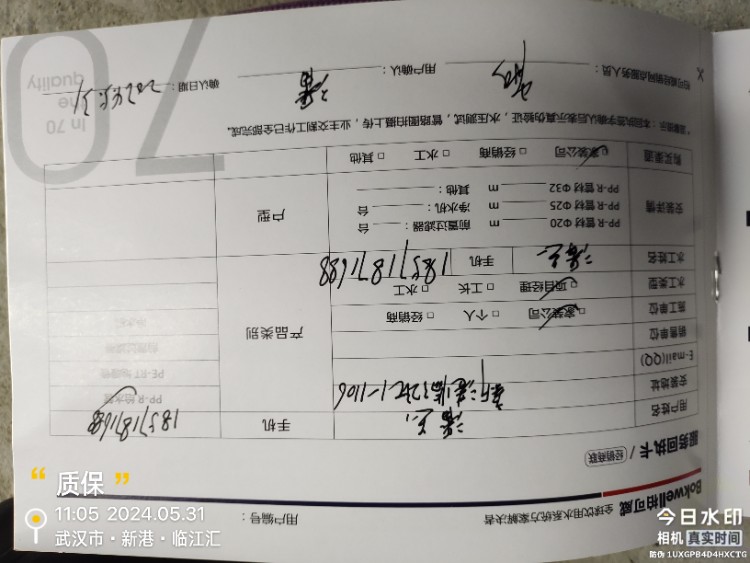 Bokwell柏可威 全球饮用水系统方案解决者
用户编号：
服务回执卡 / 经销商联
用户姓名 手机 18571871688
安装地址 1-1106 产品类别 PP-R 给水管
E-mail(QQ) PE-RT 地暖管
销售单位 前置过滤器
施工单位 家装公司 个人 经销商 净水机
水工类型 项目经理 工长 水工
水工姓名 手机 18571871688
安装详情 PP-R 管材 Φ20 m 前置过滤器： 台 户型
PP-R 管材 Φ25 m 净水机： 台
PP-R 管材 Φ32 m 其他：
购买渠道 家装公司 经销商 水工 其他
*温馨提示：本回执签字确认后表示真伪验证，水压测试，管路图拍摄上传，业主交割工作已全部完成。
柏可威经销网点服务人员： 用户确认： 确认日期：2024.5.31
In 70
the
quality
70
“质保”
11:05 2024.05.31
武汉市·新港·临江汇
今日水印
相机 真实时间
防伪 1UXGPB4D4HXCTG